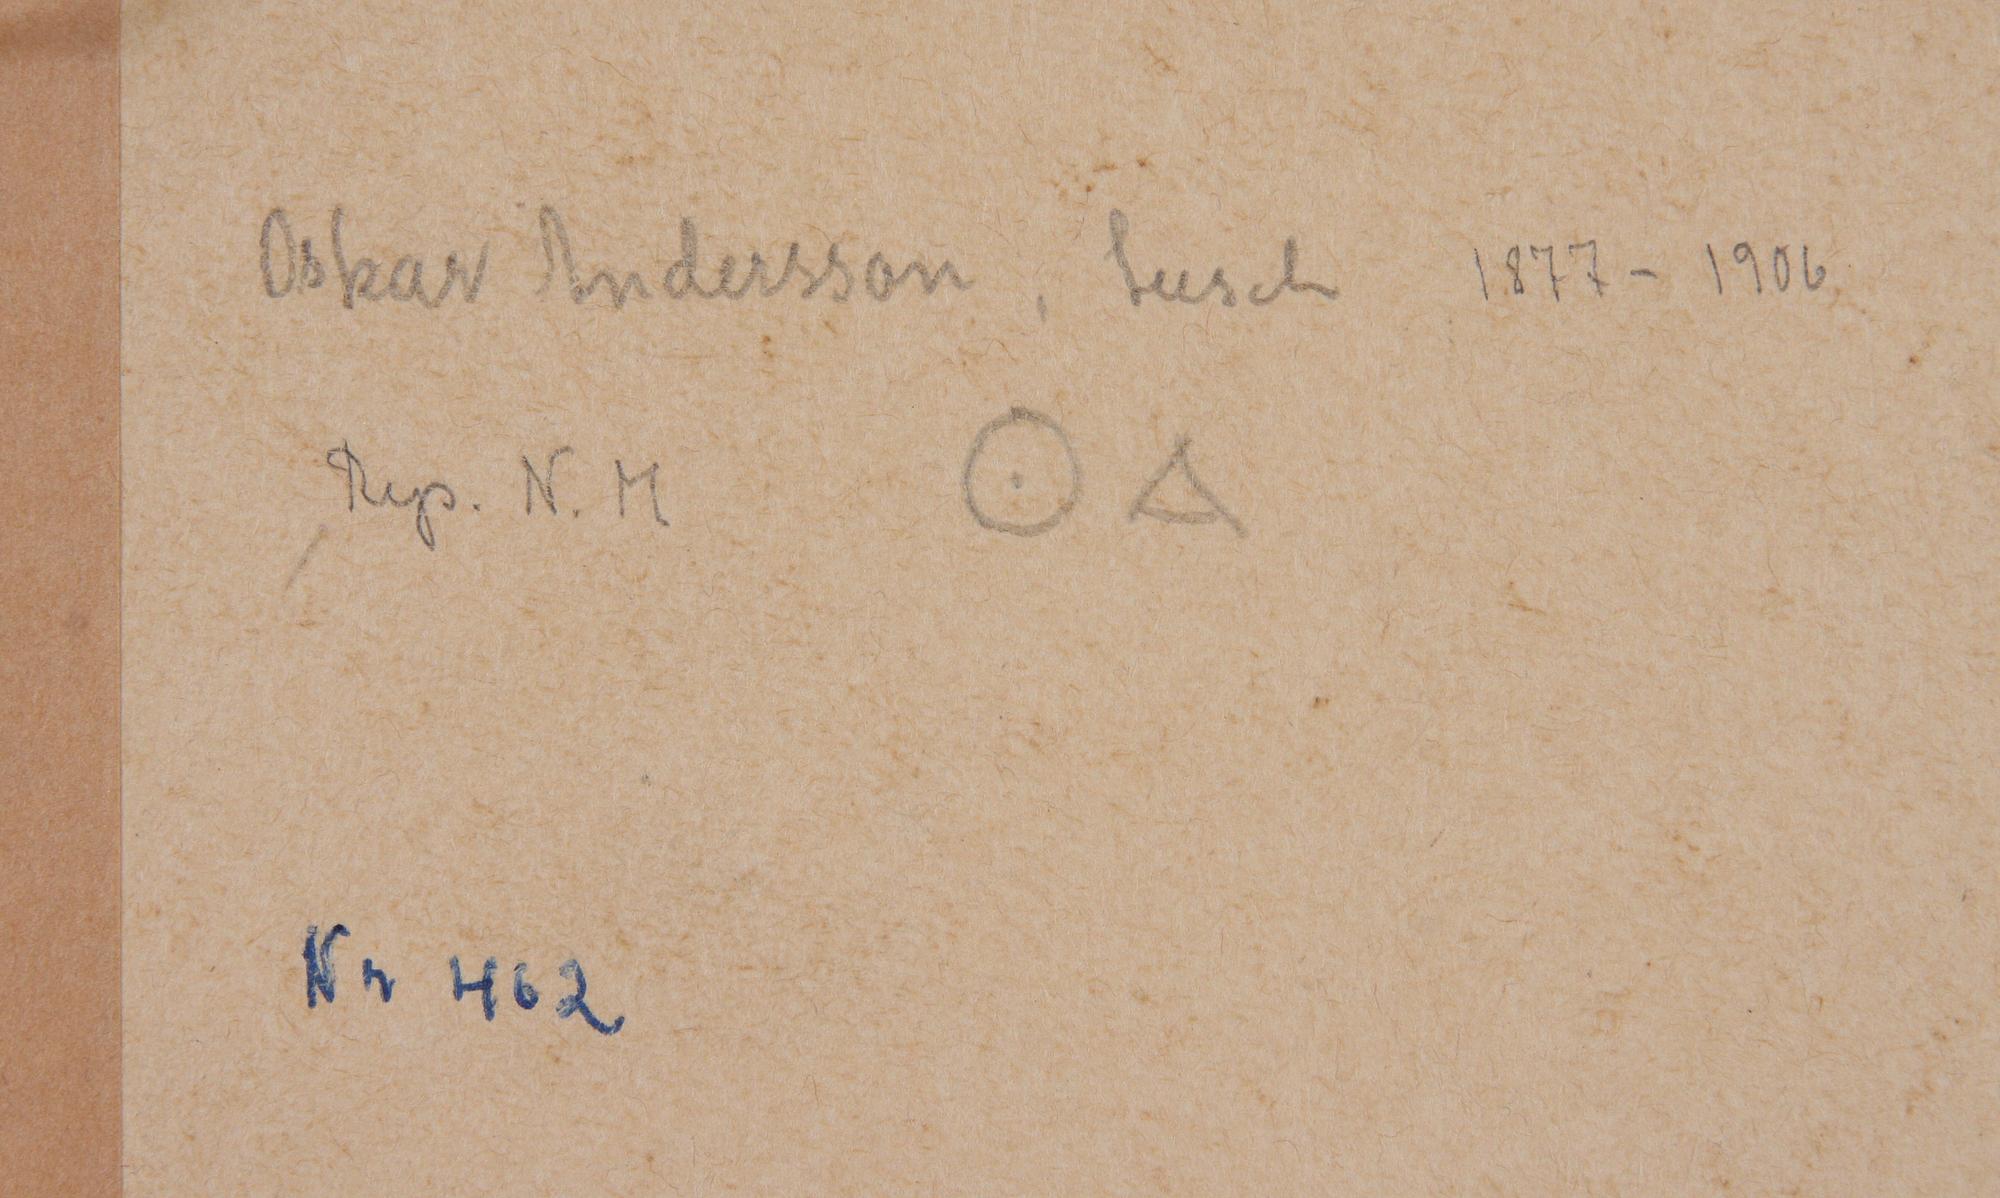 Oskar Andersson, tusch 1877 - 1906
Rep. N. M
Nr 462